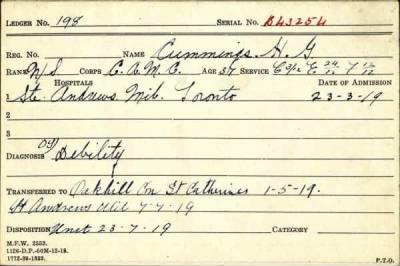 LEDGER NO. 198 SERIAL NO. B43254
REG. NO. NAME Cummings. H. G.
RANK N/S CORPS C.A.M.C. AGE 37 SERVICE
HOSPITALS DATE OF ADMISSION
1 St. Andrews. Mil. Toronto 23-3-19
2
3
DIAGNOSIS Debility
TRANSFERRED TO Oakhill Con St Catherines 1-5-19.
St Andrews Mil 7-7-19
DISPOSITION Unct 23-7-19 CATEGORY
M.F.W. 2553.
1126-D.P.-60M-12-18.
1772-39-1523. P.T.O.